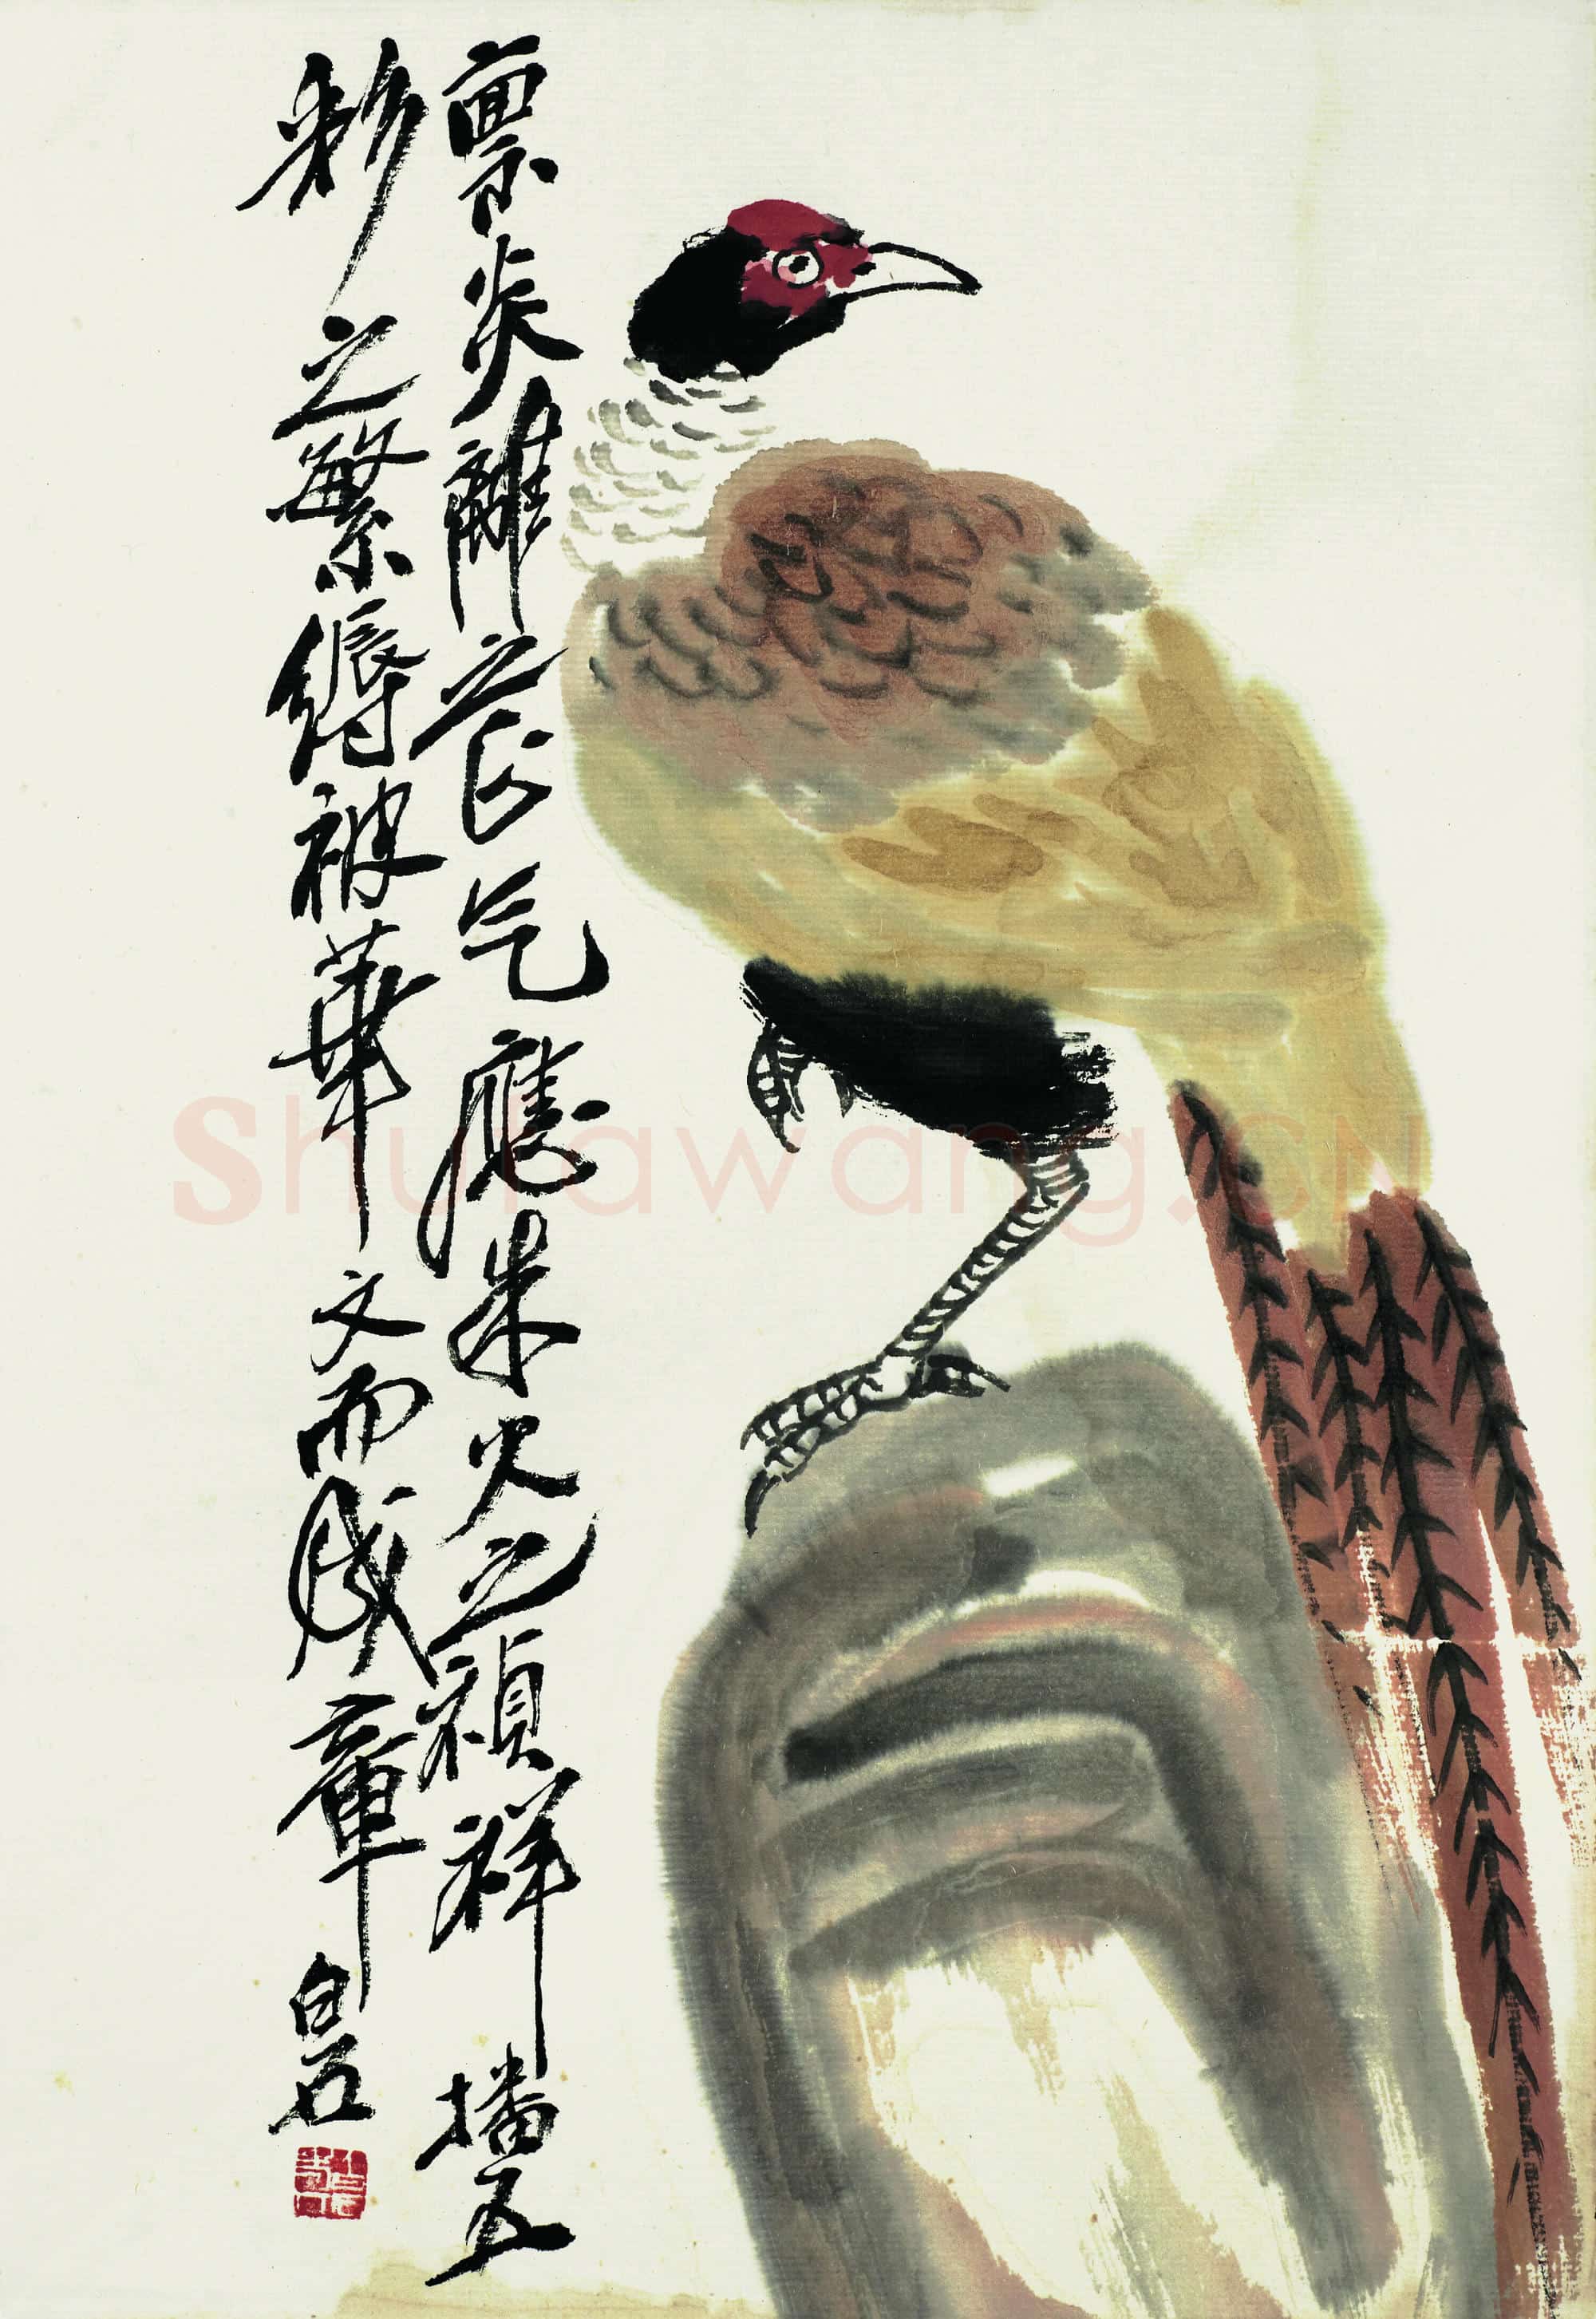 禀炎離之正气應朱火之禎祥播五
彩之繁縟被華文而成章
白石
shufawang.CN